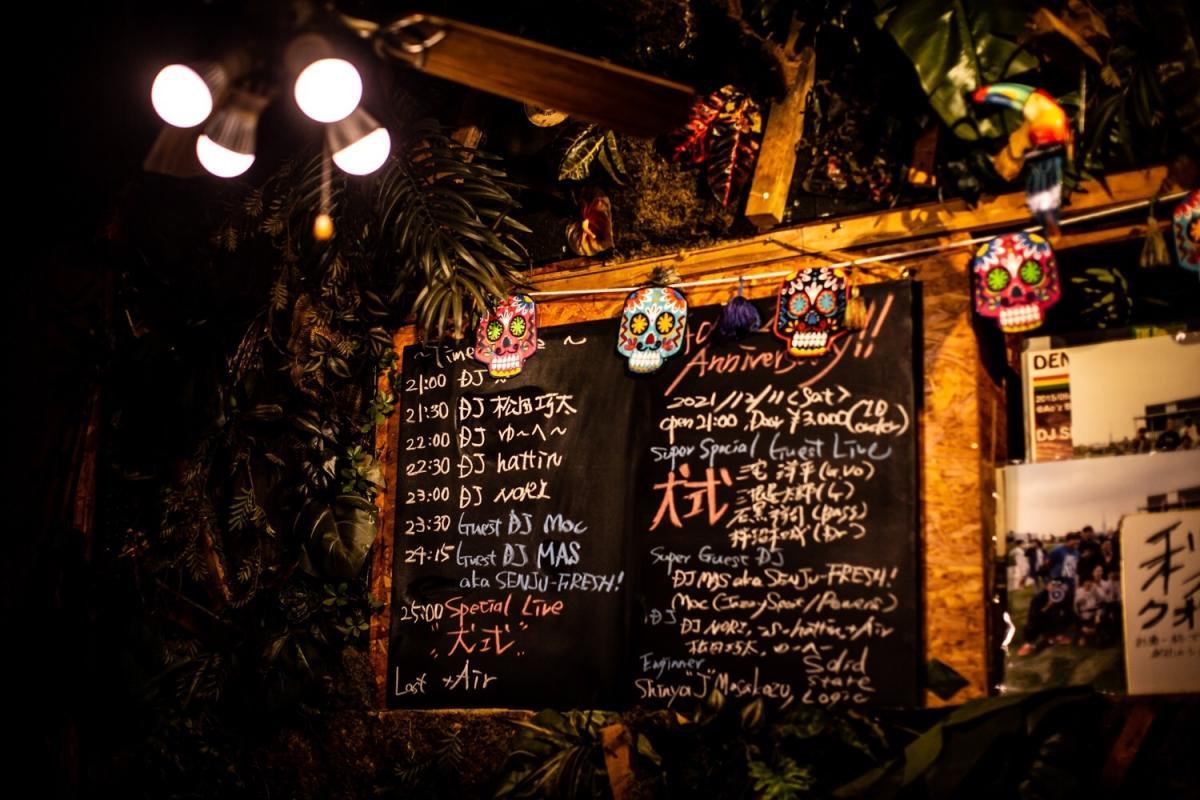 ~Time
21:00 DJ
21:30 DJ 松田巧太
22:00 DJ ゆ~へ~
22:30 DJ hattin
23:00 DJ NORI
23:30 Guest DJ Moc
24:15 Guest DJ MAS
aka SENJU-FRESH!
25:00 Special Live
"犬式"
Last +Air
Anniversary!!
2021/12/11 <Sat>
open 21:00 Door ¥3.000 (1D order)
Super Special Guest Live
犬式
三宅 洋平 (G.Vo)
(Bass)
(Dr)
Super Guest DJ
DJ MAS aka SENJU-FRESH!
Moc (Jazzy Sport/Powers)
:DJ
DJ NORI, hattin, +Air
松田巧太, ゆ~へ~
Engineer
Shinya "J" Masakazu,
Solid State Logic
DEN
DJ S
利
ク